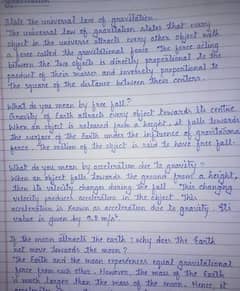 State the universal law of gravitation
The universal law of gravitation states that every
object in the universe attracts every other object with
a force called the gravitational force. The force acting
between the two objects is directly proportional to the
product of their masses and inversely proportional to
the square of the distance between their centers.
What do you mean by free fall?
Gravity of Earth attracts every object towards its centre.
When an object is released from a height, it falls towards
the surface of the Earth under the influence of gravitational
force. The motion of the object is said to have free fall.
What do you mean by acceleration due to gravity?
When an object falls towards the ground from a height,
then its velocity changes during the fall. This changing
velocity produces acceleration in the object. This
acceleration is known as acceleration due to gravity. Its
value is given by 9.8 m/s².
If the moon attracts the earth, why does the Earth
not move towards the moon?
The Earth and the moon experiences equal gravitational
force from each other. However, the mass of the Earth
is much larger than the mass of the moon. Hence, it